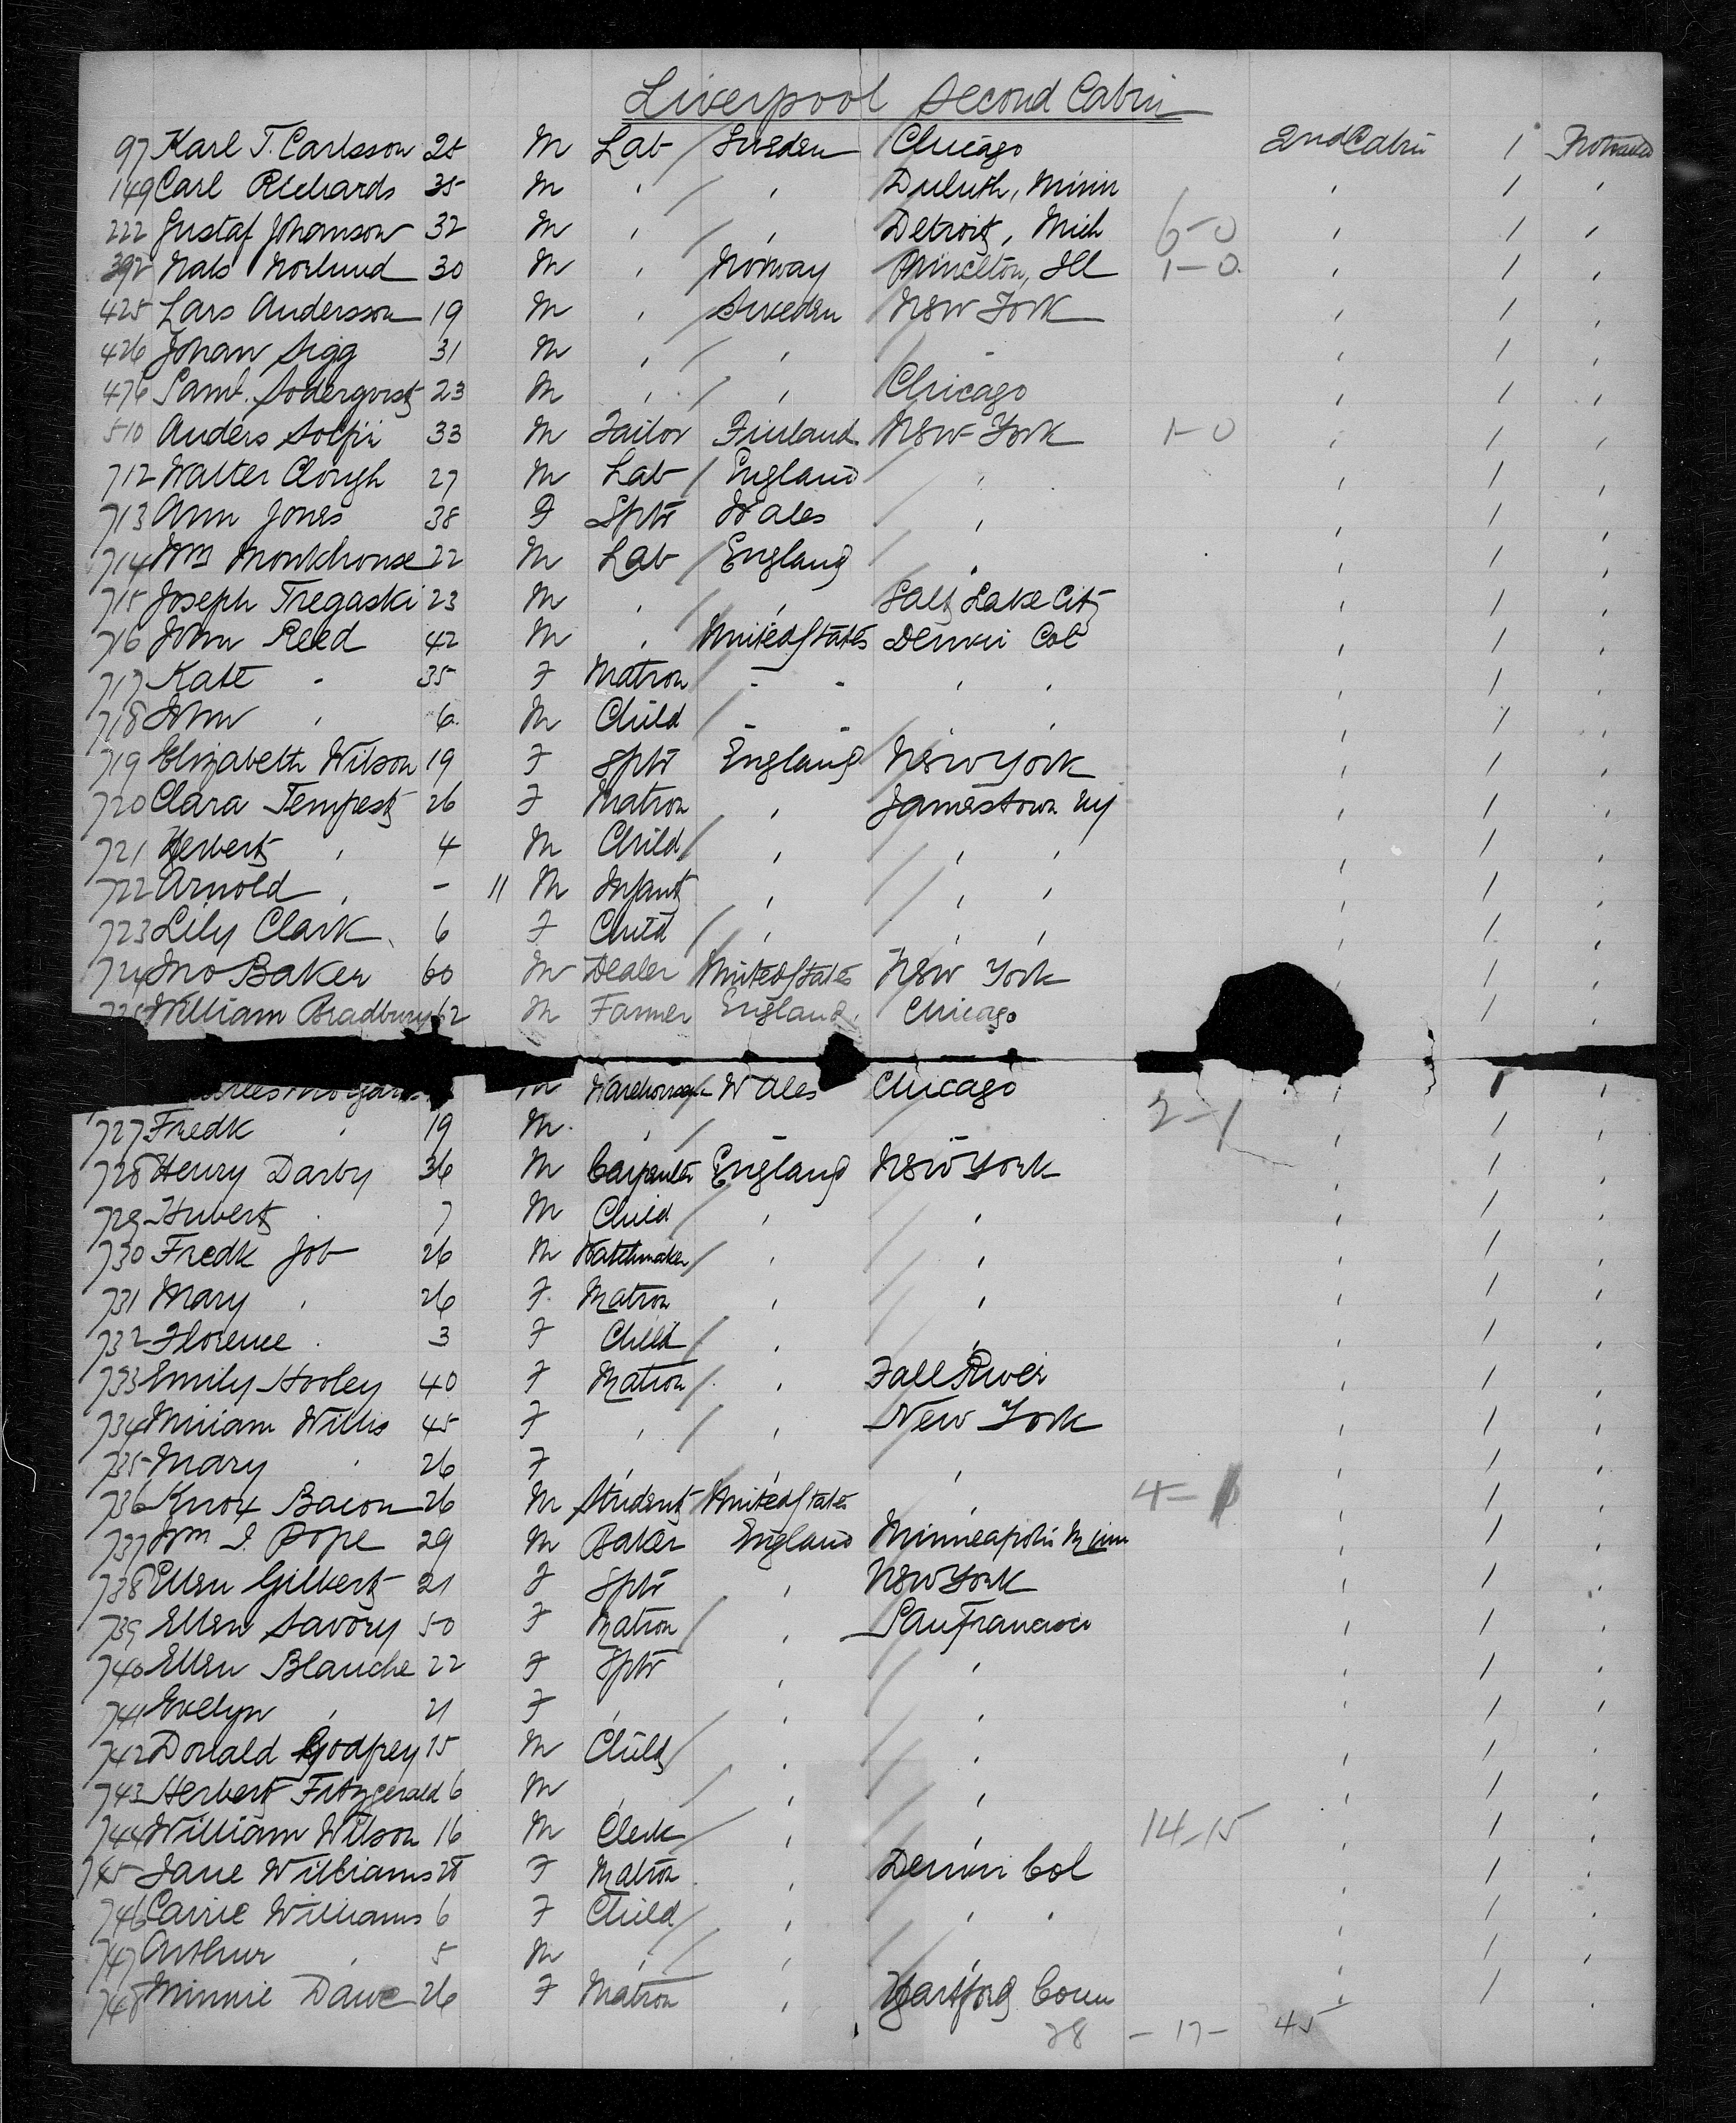 Liverpool Second Cabin
97 Karl T. Carlsson 28 M Lab / Sweden / Chicago 2nd Cabin 1
149 Carl Richards 35 M " / " Duluth, Minn " 1 "
222 Gustaf Johanson 32 M " " Detroit, Mich 6-0 " 1 "
392 Nals Norlund 30 M " Norway Princeton, Ill 1-0 " 1 "
425 Lars Andersson 19 M " / Sweden / New York " 1 "
426 Johan Sigg 31 M " / " / " " 1 "
476 Saml. Soderqvist 23 M " / " Chicago " 1 "
510 Anders 33 M Tailor Finland New York 1-0 " 1 "
712 Walter Clough 27 M Lab / England / " " 1 "
713 Ann Jones 38 F Sptr Wales / " " 1 "
714 Wm Monkhouse 22 M Lab / England / " " 1 "
715 Joseph Tregaski 23 M " / " Salt Lake City " 1 "
716 John Reed 42 M " United States Denver Col " 1 "
717 Kate " 35 F Matron / " " " " " 1 "
718 John " 6 M Child / " " " " " 1 "
719 Elizabeth Wilson 19 F Sptr England / New York " 1 "
720 Clara Tempest 26 F Matron " Jamestown NY " 1 "
721 Herbert " 4 M Child / " / " " " 1 "
722 Arnold " - 11 M Infant " / " " " 1 "
723 Lily Clark 6 F Child / " / " " " 1 "
724 Jno Baker 60 M Dealer United States New York 1 "
725 William Bradbury 62 M Farmer England Chicago 1 "
M / Wales Chicago " 1 "
727 Fredk " 19 M " / " / " 2-1 " 1 "
728 Henry Darby 36 M Carpenter England New York " 1 "
729 Hubert " 7 M Child / " / " " 1 "
730 Fredk Job 26 M Watchmaker / " / " " 1 "
731 Mary " 26 F Matron " / " " 1 "
732 Florence " 3 F Child / " / " " 1 "
733 Emily Hooley 40 F Matron / " Fall River " 1 "
734 Miriam Willis 45 F " / " New York " 1 "
735 Mary " 26 F " / " / " " 1 "
736 Knox Bacon 26 M Student / United States " 4- " 1 "
737 Wm J. Pope 29 M Baker England Minneapolis Minn " 1 "
738 Ellen Gilbert 21 F Sptr " New York " 1 "
739 Ellen Savory 50 F Matron / " San Francisco " 1 "
740 Ellen Blanche 22 F Sptr " / " " 1 "
741 Evelyn " 21 F " " / " " 1 "
742 Donald Godfrey 15 M Child / " / " " 1 "
743 Herbert Fitzgerald 6 M " / " / " " 1 "
744 William Wilson 16 M Clerk / " / " 14-15 " 1 "
745 Jane Williams 28 F Matron " Denver Col " 1 "
746 Carrie Williams 6 F Child / " / " " " 1 "
747 Arthur " 5 M " / " / " " 1 "
748 Minnie Dawe 26 F Matron " Hartford Conn " 1 "
28 - 17 - 45